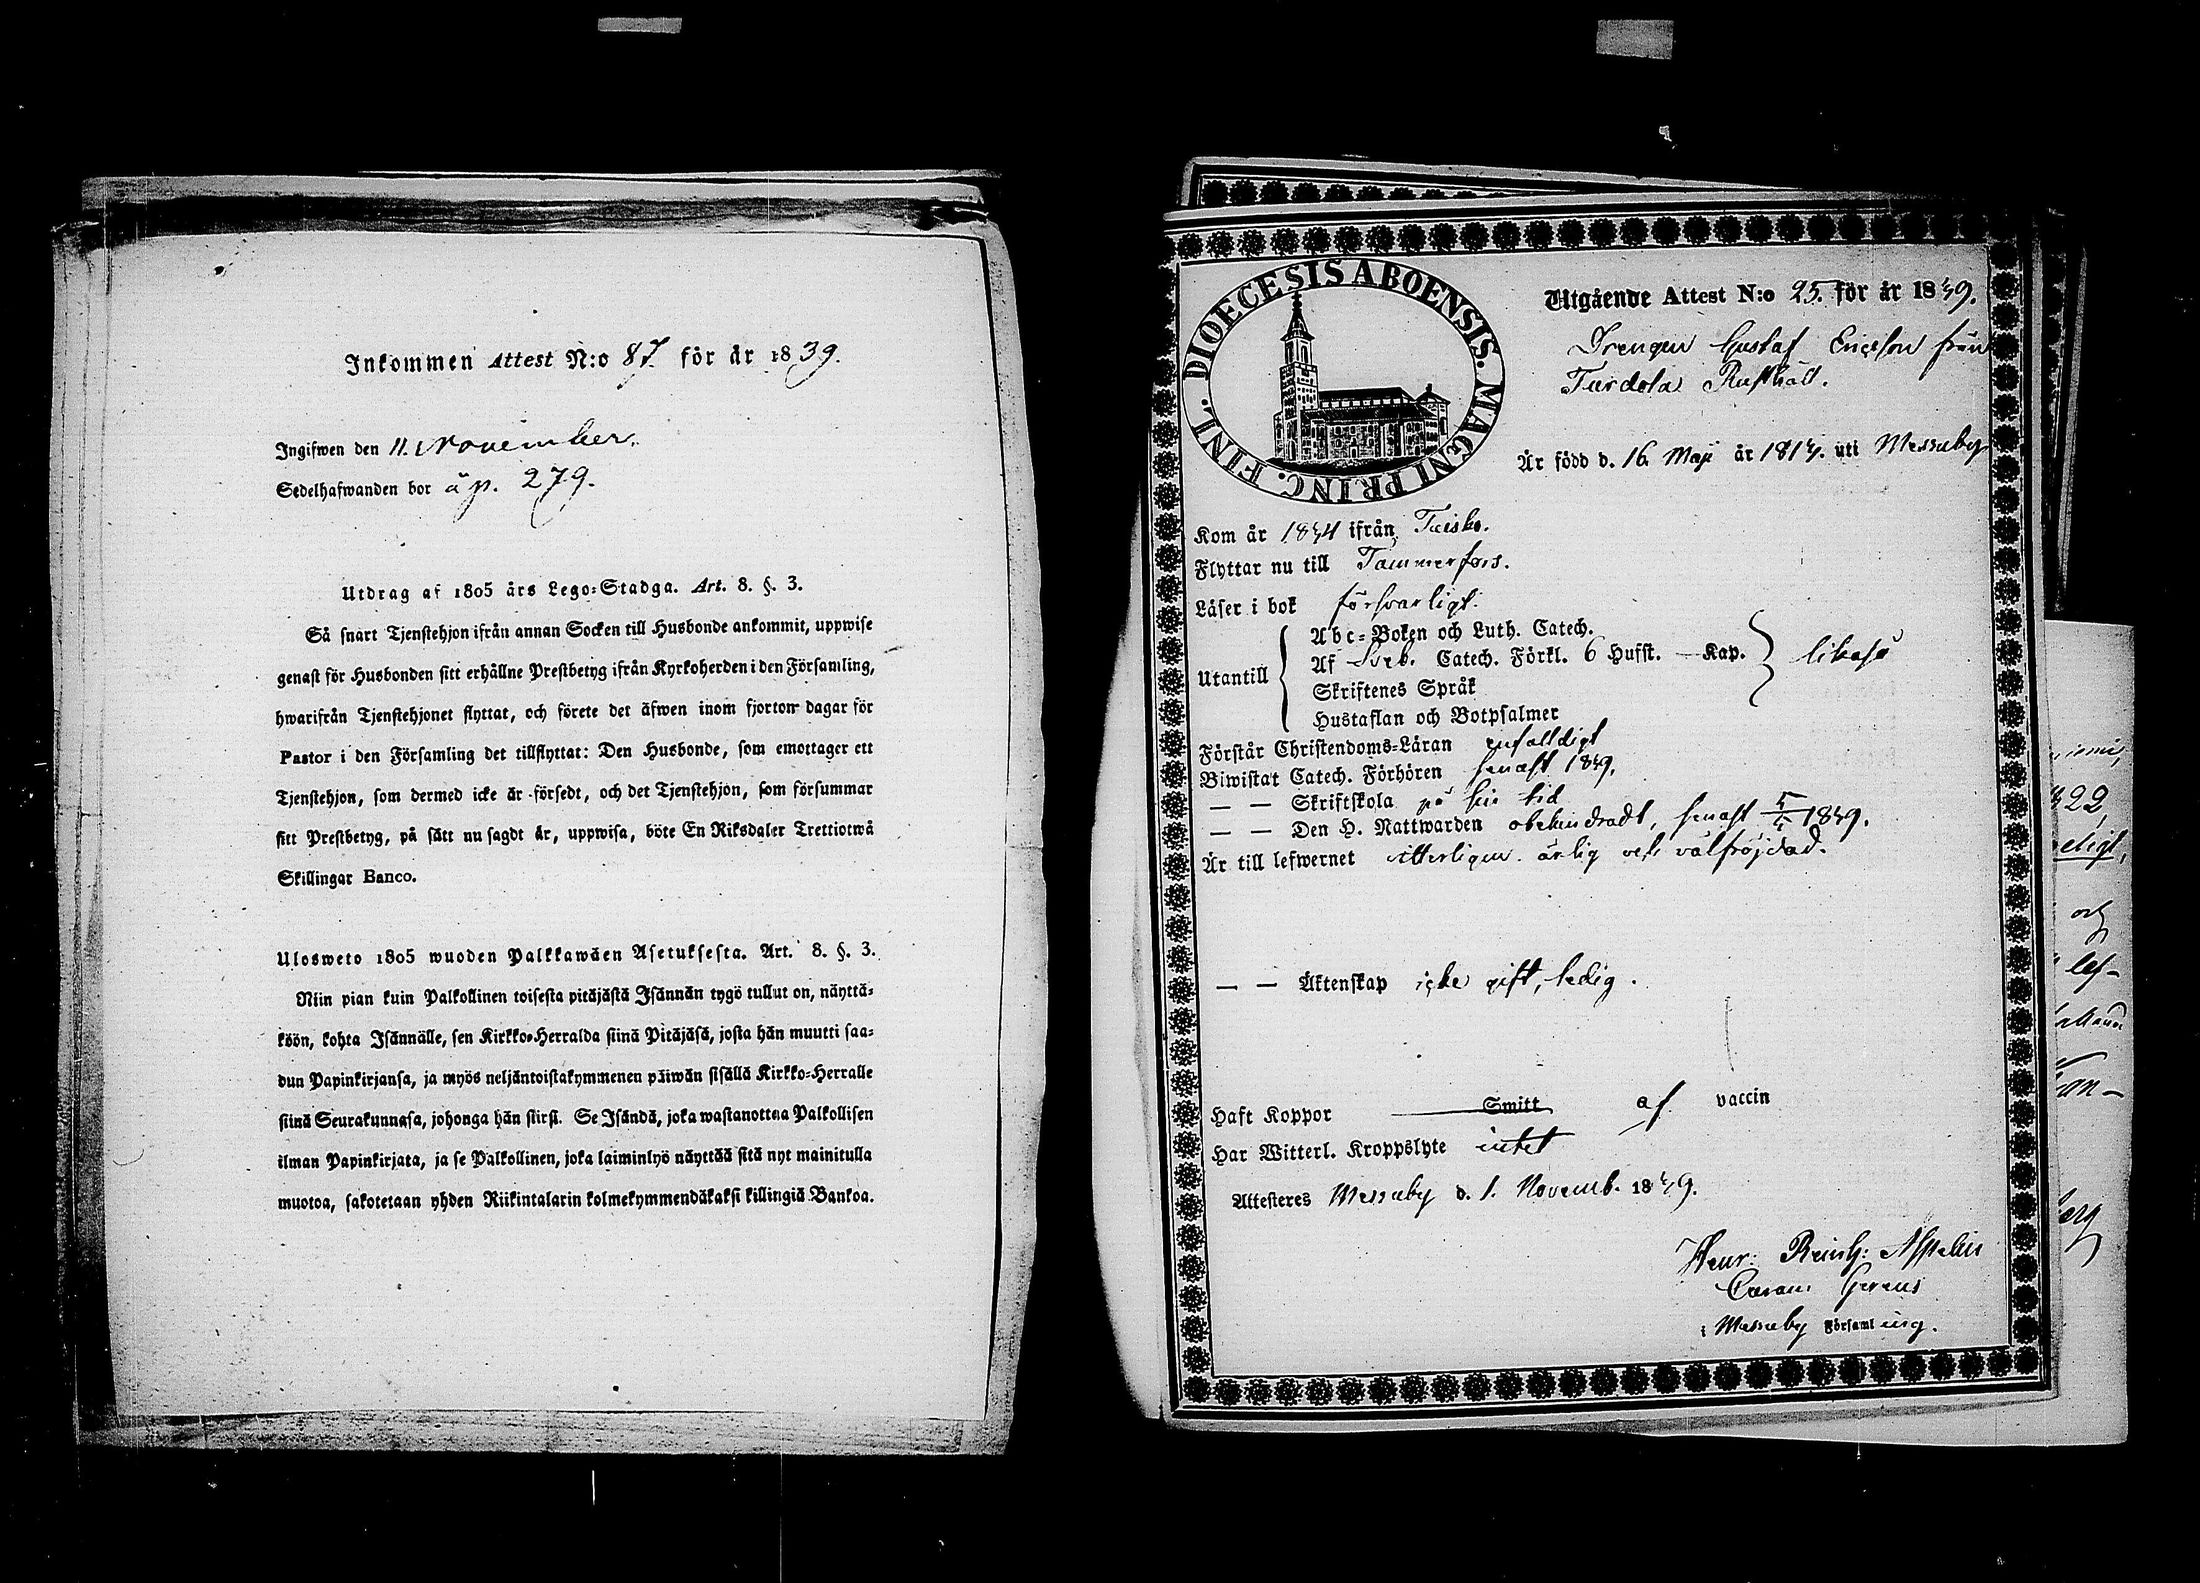 Inkommen Attest N:o 87. för år 1839.
Ingifwen den 11. November.
Sedelhafwanden bor å p. 279.
Utdrag af 1805 års Lego-Stadga. Art. 8. §. 3.
Så snart Tjenstehjon ifrån annan Socken till Husbonde ankommit, uppwise
genast för Husbonden sitt erhållne Prestbetyg ifrån Kyrkoherden i den Församling,
hwarifrån Tjenstehjonet flyttat, och förete det äfwen inom fjorton dagar för
Pastor i den Församling det tillflyttat: Den Husbonde, som emottager ett
Tjenstehjon, som dermed icke är försedt, och det Tjenstehjon, som försummar
sitt Prestbetyg, på sätt nu sagdt är, uppwisa, böte En Riksdaler Trettiotwå
Skillingar Banco.
Ulosweto 1805 wuoden Palkkawäen Asetuksesta. Art. 8. §. 3.
Niin pian kuin Palkollinen toisesta pitäjästä Isännän tygö tullut on, näyttä-
köön, kohta Isännälle, sen Kirkko-Herralda siinä Pitäjäsä, josta hän muutti saa-
dun Papinkirjansa, ja myös neljäntoistakymmenen päiwän sisällä Kirkko-Herralle
siinä Seurakunnasa, johonga hän siirsi. Se Isändä, joka wastanottaa Palkollisen
ilman Papinkirjata, ja se Palkollinen, joka laiminlyö näyttää sitä nyt mainitulla
muotoa, sakotetaan yhden Riikintalarin kolmekymmendäkaksi killingiä Bankoa.
DIOECESIS ABOENSIS. MAGNI PRINC. FINL.
Utgående Attest N:o 25. för år 1839.
Drengen Gustaf Ericsson från
Turdola Rusthåll.
Är född d. 16. Maji år 1817. uti Messuby
Kom år 1834 ifrån Teisko.
Flyttar nu till Tammerfors.
Läser i bok försvarligt.
Utantill
Abc-Boken och Luth. Catech.
Af Sveb. Catech. Förkl. 6 Hufst. — Kap.
Skriftenes Språk
Hustaflan och Botpsalmer
likaså
Förstår Christendoms-Läran enfaldigt
Biwistat Catech. Förhören senast 1839.
— — Skriftskola på sin tid
— — Den H. Nattwarden obehindradt, senast 1839.
Är till lefwernet vitterligen ärlig och välfrejdad.
— — Äktenskap icke gift, ledig.
Haft Koppor Smitt af vaccin
Har Witterl. Kroppslyte intet
Attesteres Messuby d. 1. Novemb. 1839.
Henr: Reinh: Aspelin
Curam Gerens
i Messuby Församling.
22
och
lef-